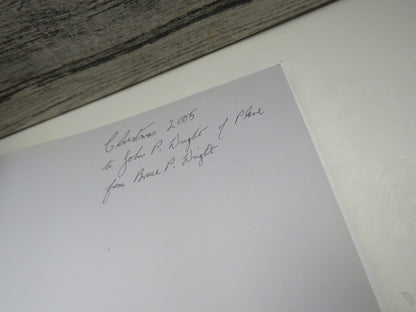 Christmas 2005
to John P. Wright of Plane
from Bruce P. Wright